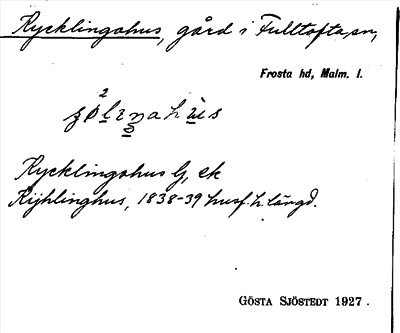 Kycklingahus, gård i Fulltofta, sn,
Frosta hd, Malm. l.
Kycklingahus G, ek
Kijhlinghus, 1838-39 husf.h.längd.
GÖSTA SJÖSTEDT 1927.